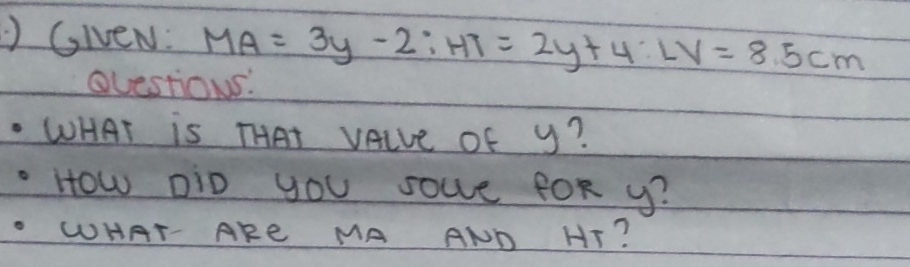 .) GIVEN: MA = 3y - 2 ; HT = 2y + 4 : LV = 8.5cm
QUESTIONS:
• WHAT IS THAT VALUE OF y?
• HOW DID YOU SOLVE FOR y?
• WHAT ARE MA AND HT?